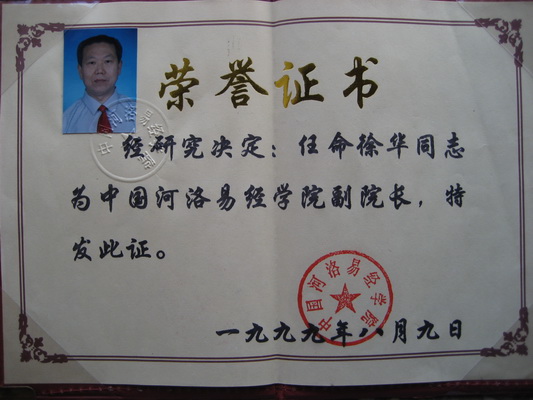 荣誉证书
经研究决定：任命徐华同志
为中国河洛易经学院副院长，特
发此证。
中国河洛易经学院
一九九九年八月九日